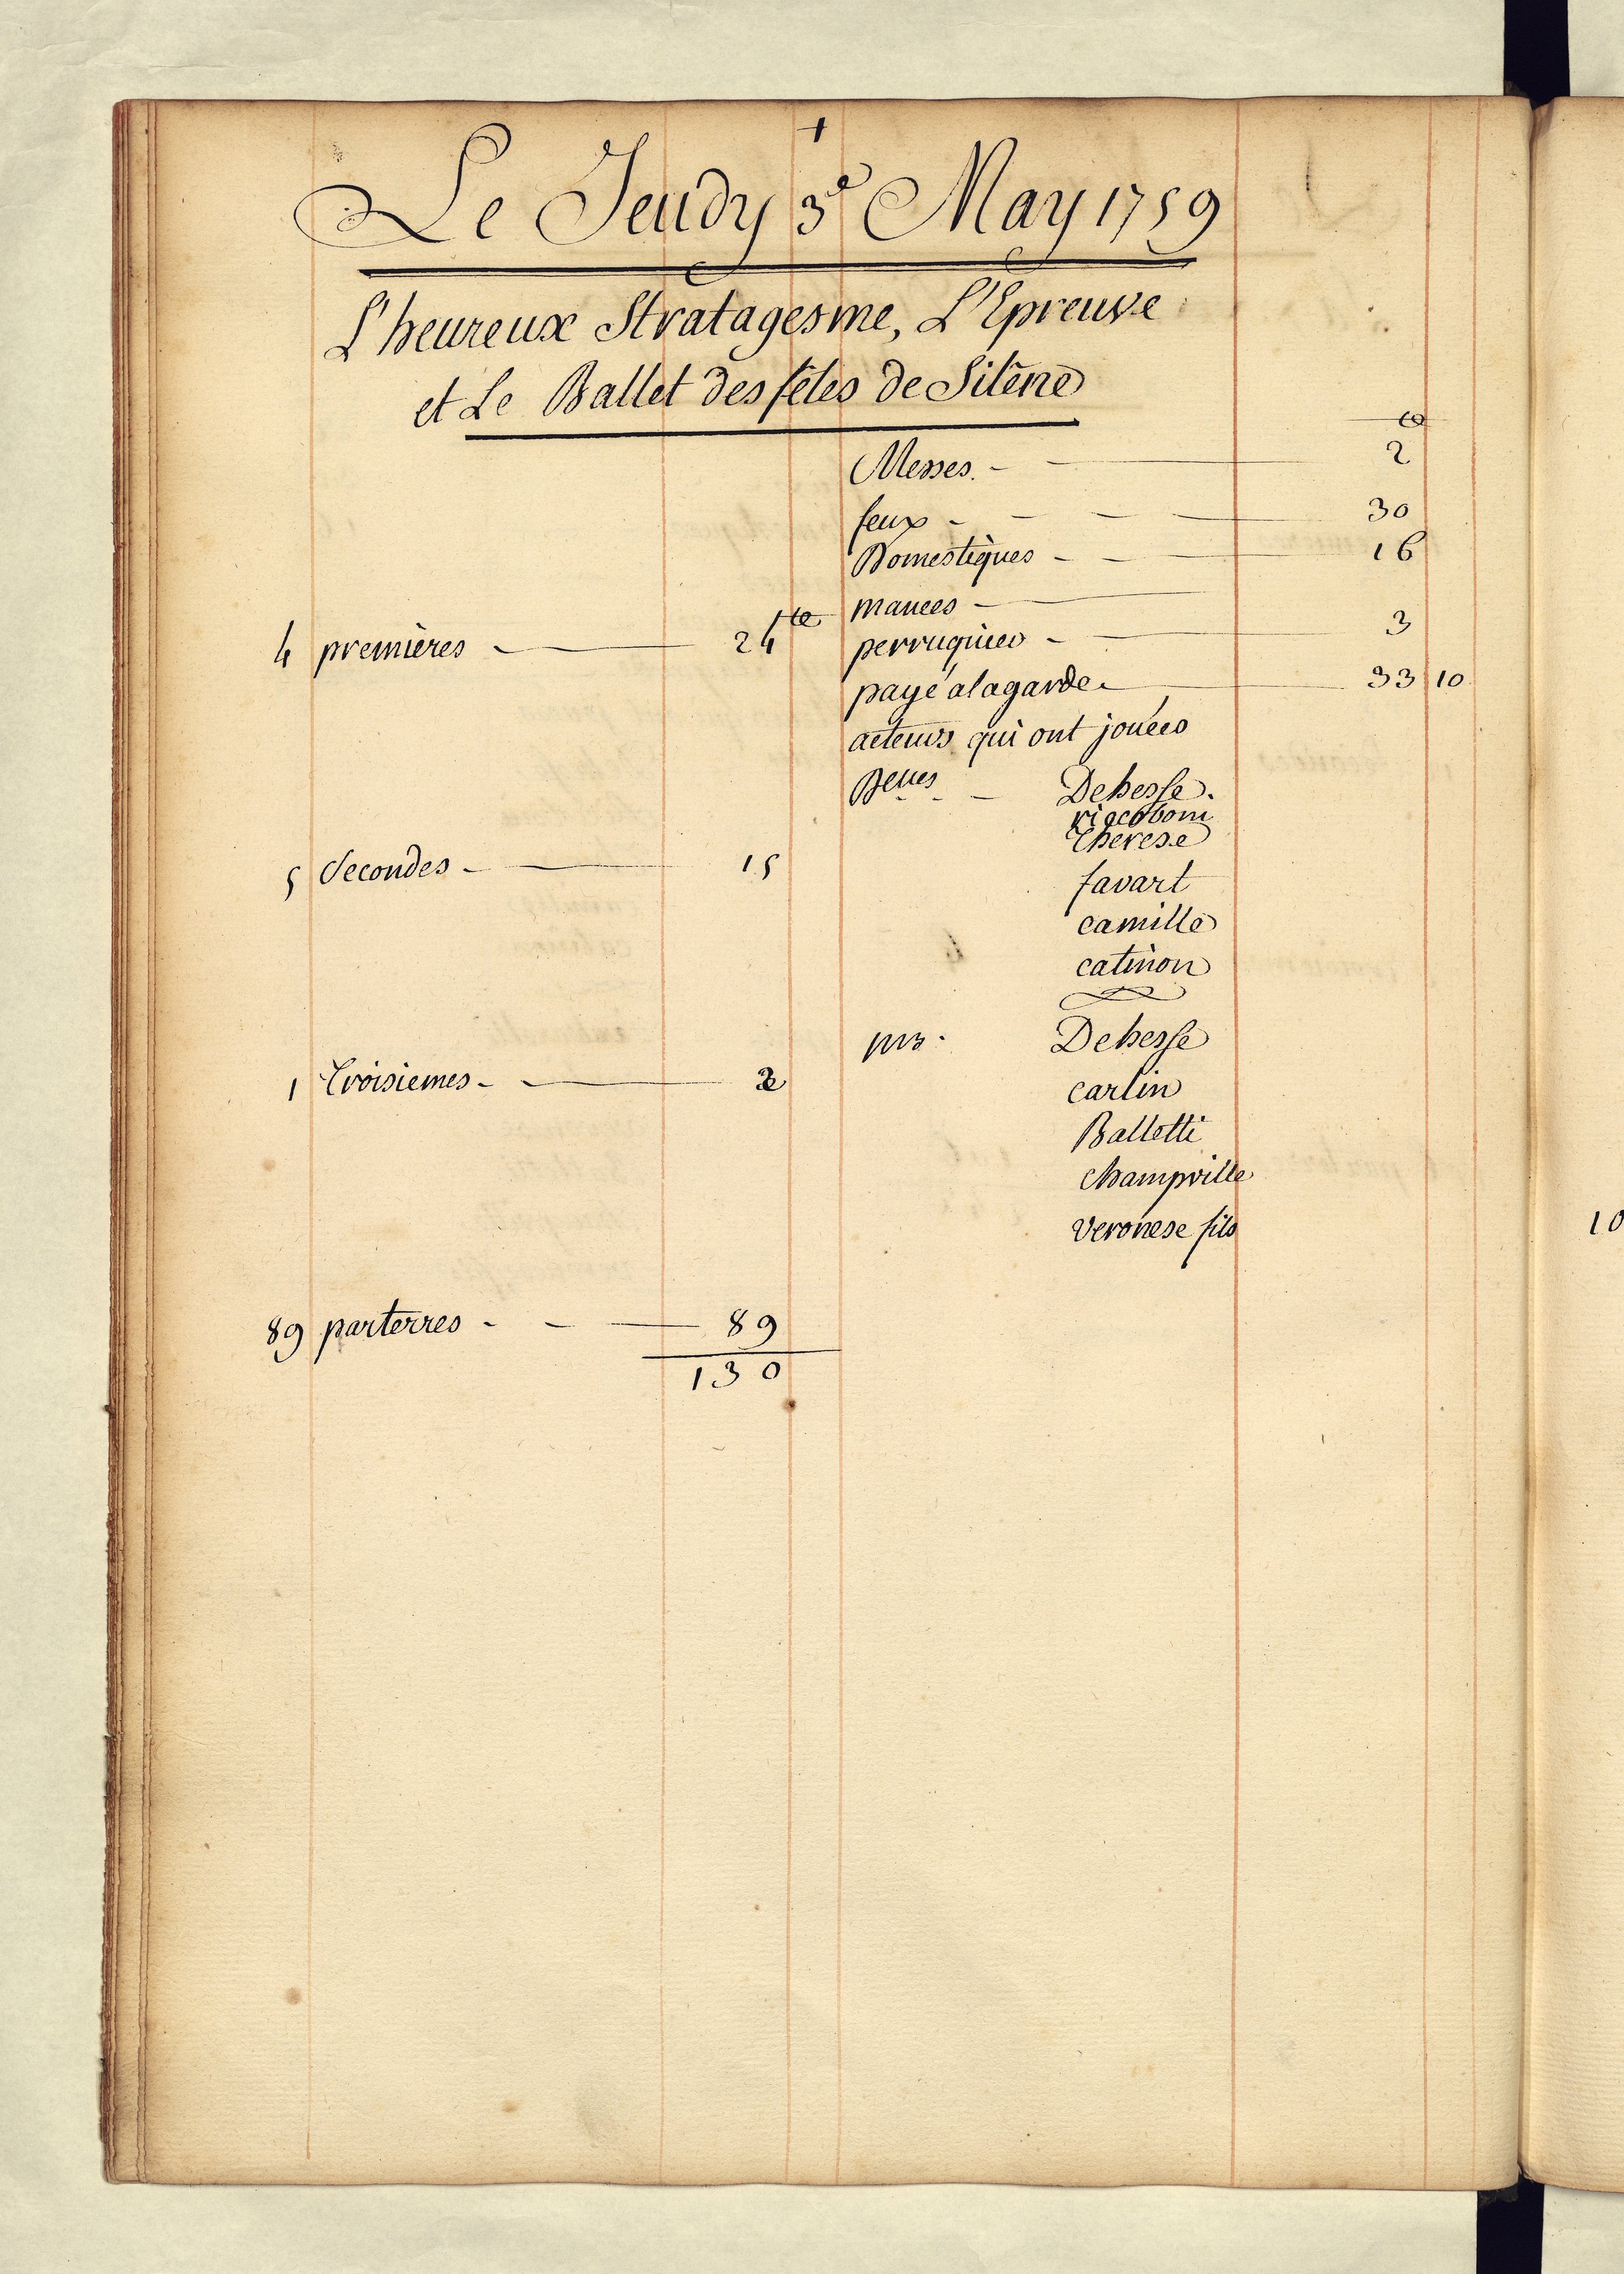 +
Le Jeudy 3e May 1759
L'heureux Stratagesme, L'Epreuve
et Le Ballet des fêtes de Silène
4 premières - 24tt
5 Secondes - 15
1 Troisiemes - 2
89 parterres - 89
130
tt
Messes. - 2
feux - 30
Domestiques - 16
mances -
perruquier - 3
payé alagarde - 33 10
acteurs qui ont jouées
Delles - Dehesse.
riccoboni
Therese
favart
camille
catinon
mrs. Dehesse
carlin
Balletti
champville
veronese fils
10